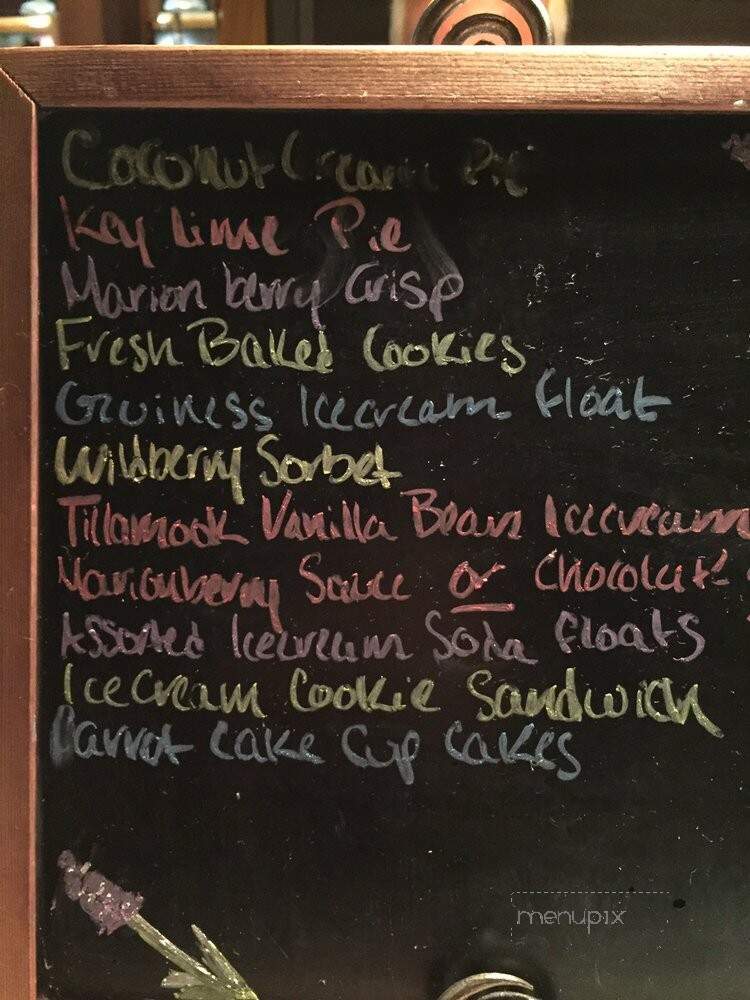 Coconut Cream Pie
Key Lime Pie
Marion berry Crisp
Fresh Baked Cookies
Guiness Icecream Float
Wildberry Sorbet
Tillamook Vanilla Bean Icecream
Marionberry Sauce or Chocolate
Assorted Icecream Soda Floats
Icecream Cookie Sandwich
Carrot Cake Cup Cakes
menupix